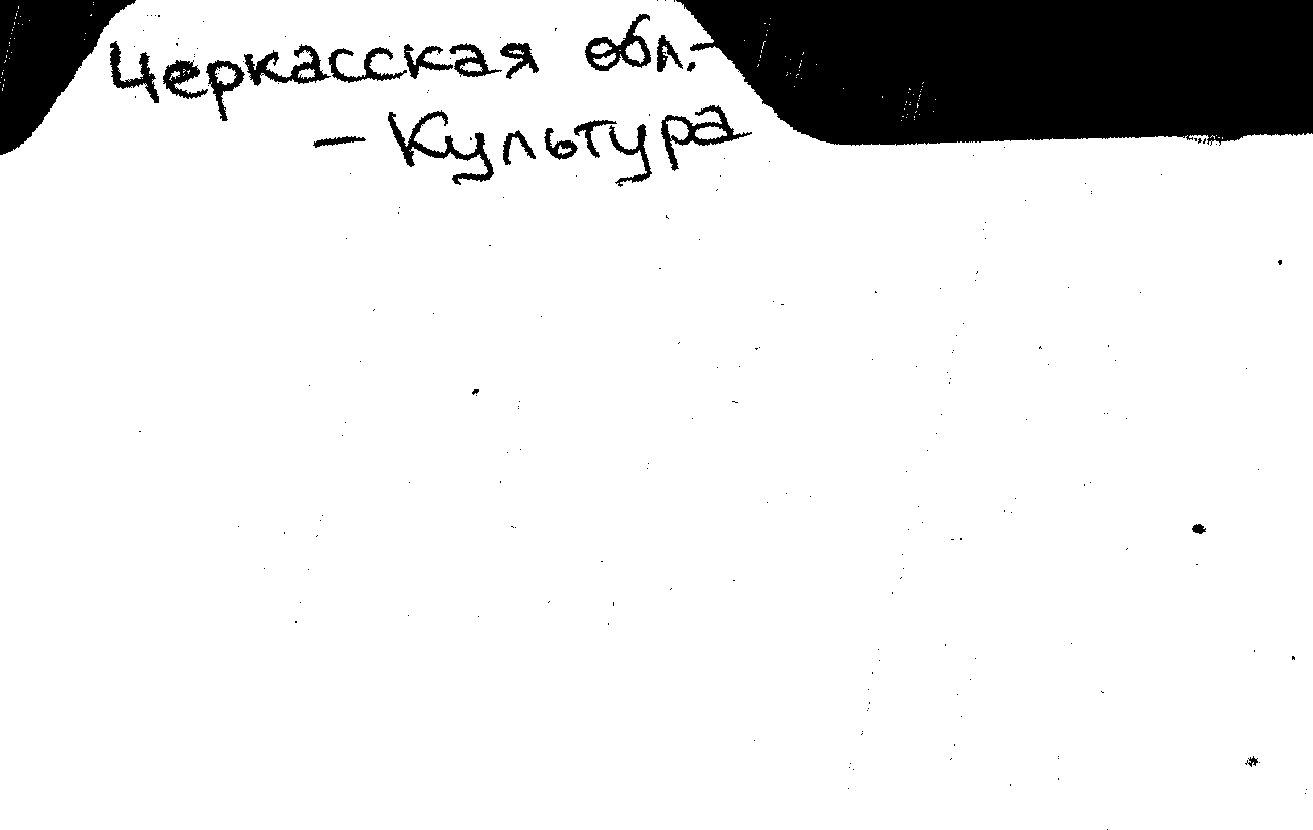 Черкасская обл.-
- Культура